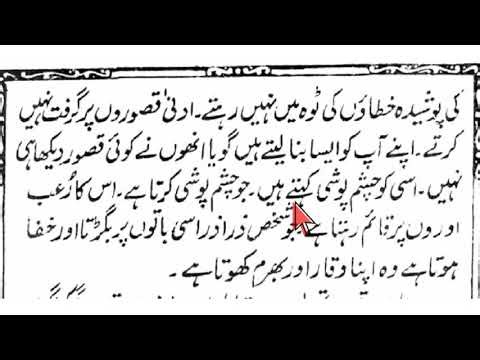 کی پوشیدہ خطاؤں کی ٹوہ میں نہیں رہتے۔ ادنیٰ قصوروں پر گرفت نہیں
کرتے۔ اپنے آپ کو ایسا بنا لیتے ہیں گویا انھوں نے کوئی قصور دیکھا ہی
نہیں۔ اسی کو چشم پوشی کہتے ہیں۔ جو چشم پوشی کرتا ہے۔ اس کا رُعب
اوروں پر قائم رہتا ہے جو شخص ذرا ذرا سی باتوں پر بگڑتا اور خفا
ہوتا ہے وہ اپنا وقار اور بھرم کھوتا ہے۔